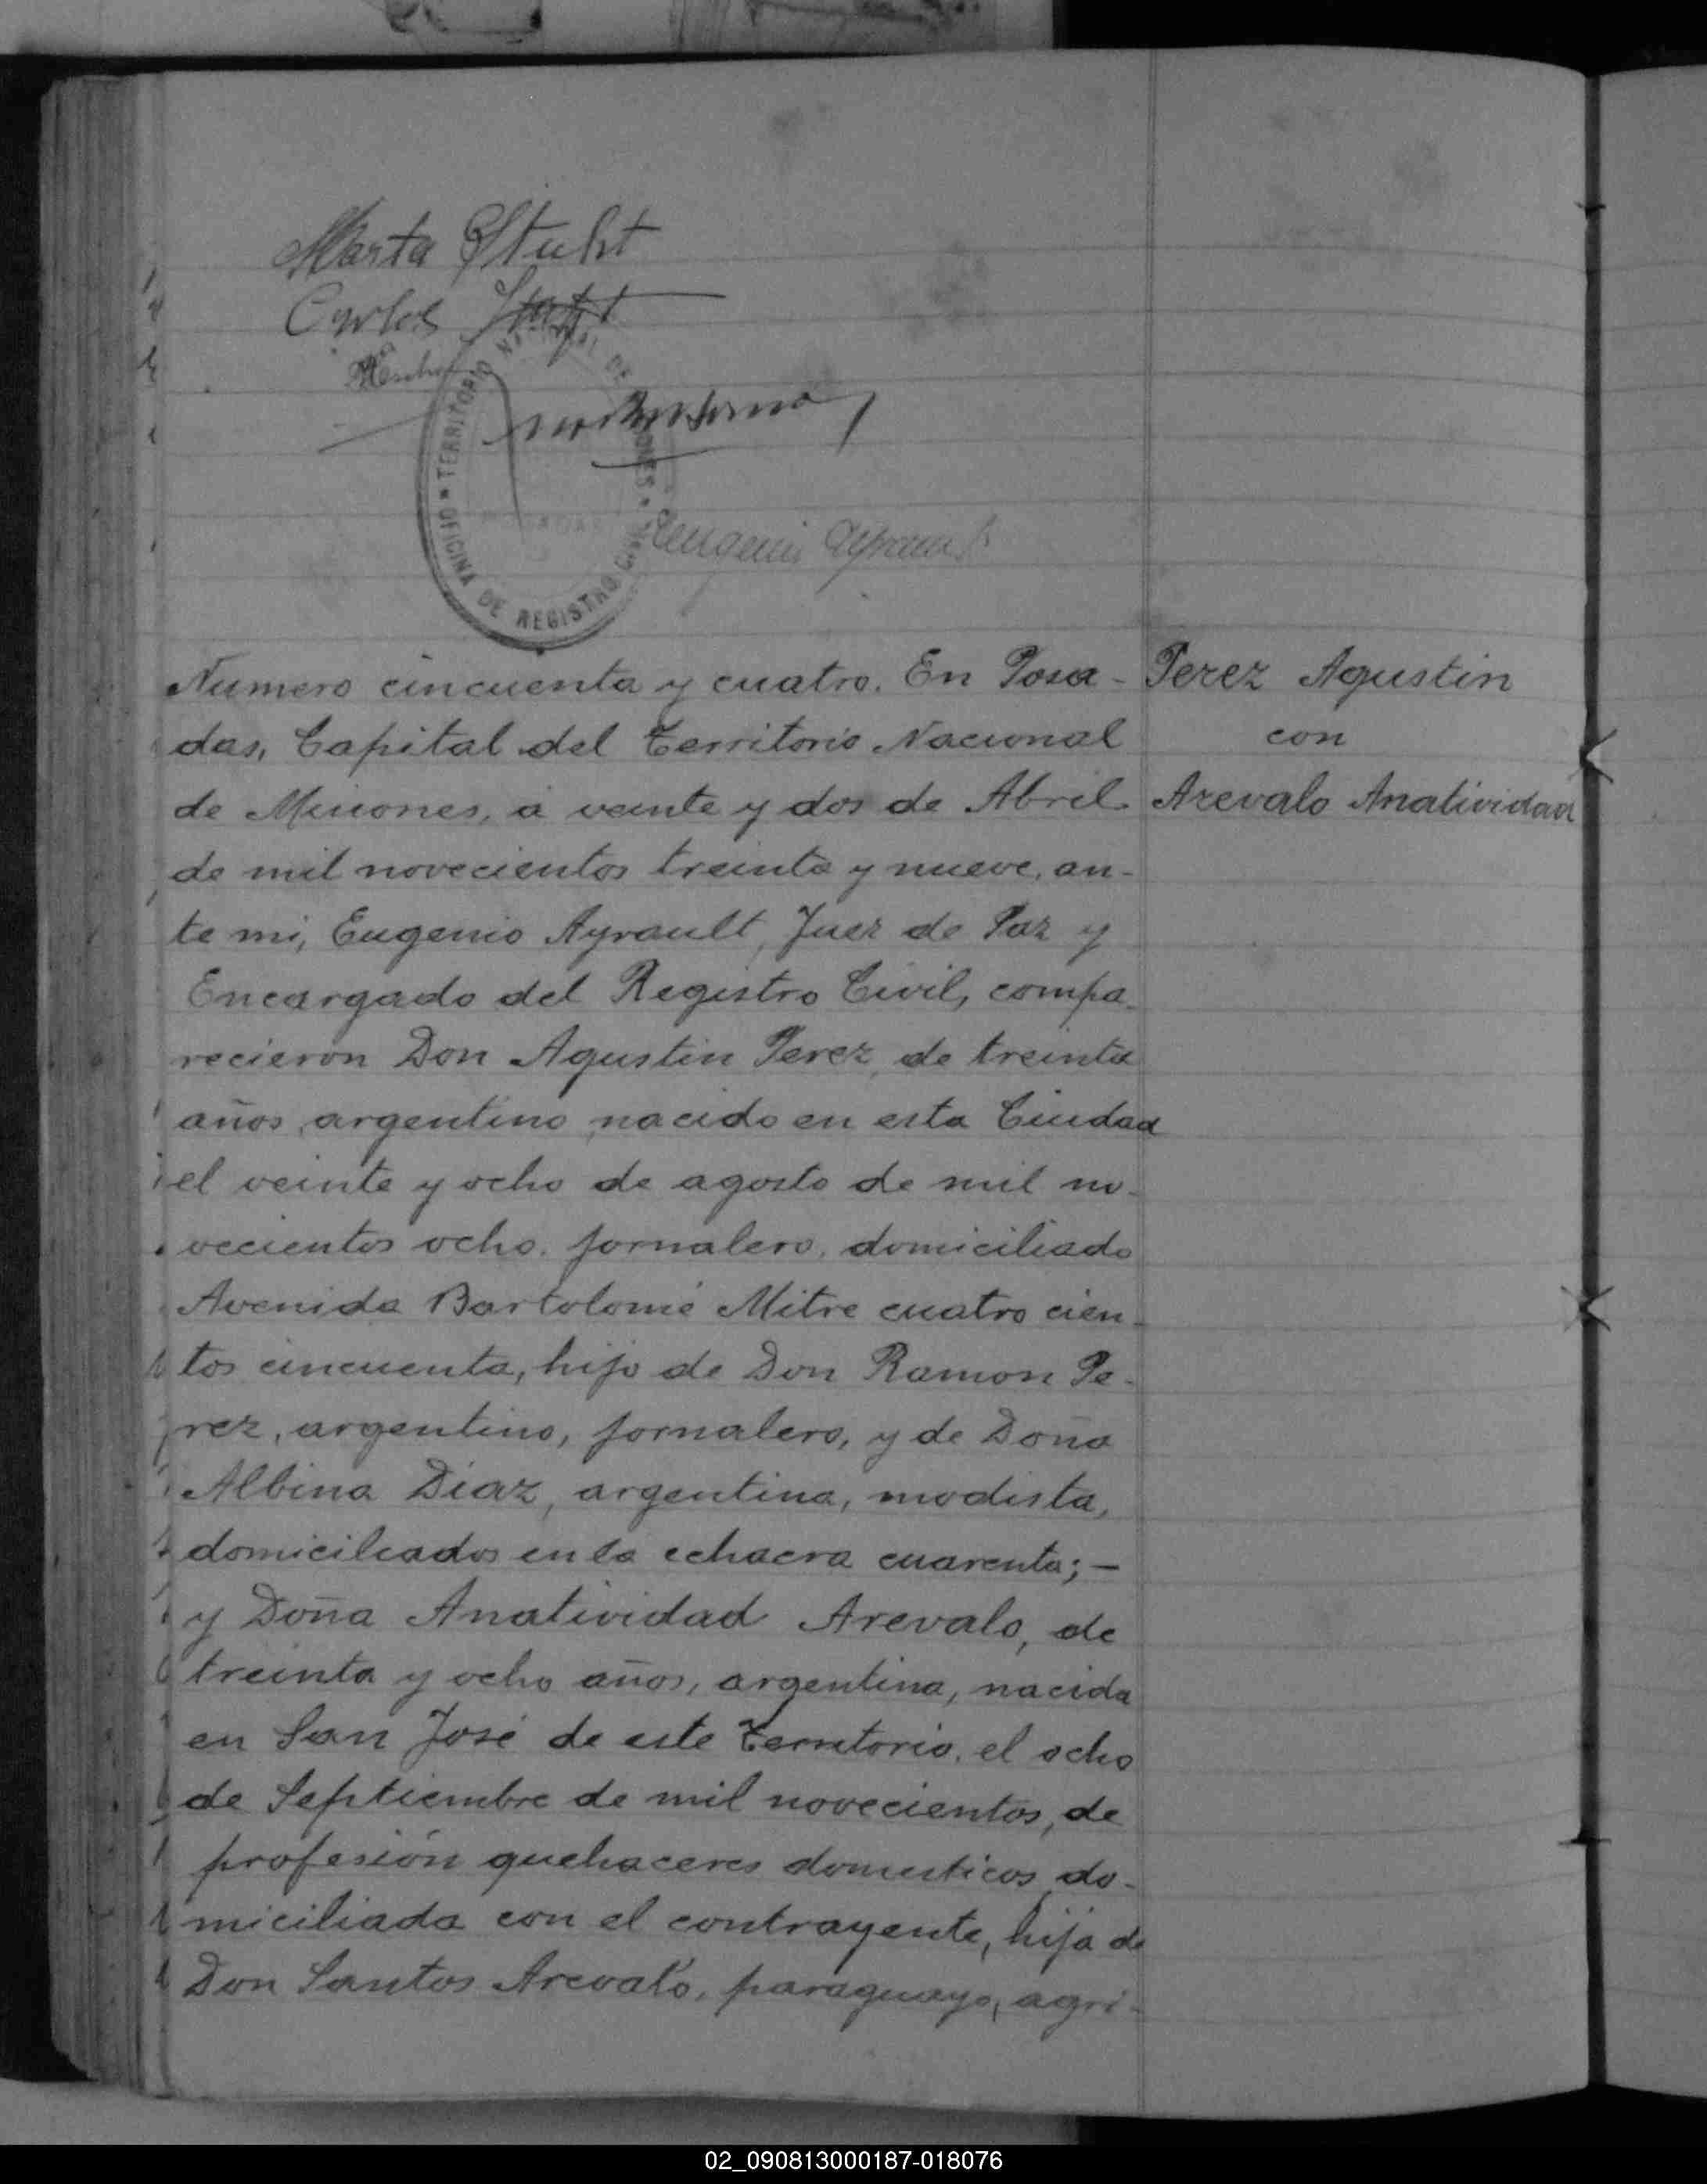 Marta Stuht
Carlos
TERRITORIO NACIONAL DE MISIONES
OFICINA DE REGISTRO CIVIL
Eugenio Ayrault
Numero cincuenta y cuatro. En Posa-
Perez Agustin
das, Capital del Territorio Nacional
con
de Misiones, a veinte y dos de Abril
Arevalo Anatividad
de mil novecientos treinta y nueve, an-
te mi, Eugenio Ayrault, Juez de Paz y
Encargado del Registro Civil, compa-
recieron Don Agustin Perez, de treinta
años, argentino, nacido en esta Ciudad
el veinte y ocho de agosto de mil no-
vecientos ocho, jornalero, domiciliado
Avenida Bartolomé Mitre cuatro cien-
tos cincuenta, hijo de Don Ramon Pe-
rez, argentino, jornalero, y de Doña
Albina Diaz, argentina, modista,
domiciliados en la chacra cuarenta; —
y Doña Anatividad Arevalo, de
treinta y ocho años, argentina, nacida
en San José de este Territorio, el ocho
de Septiembre de mil novecientos, de
profesión quehaceres domesticos, do-
miciliada con el contrayente, hija de
Don Santos Arevalo, paraguayo, agri-
02_090813000187-018076